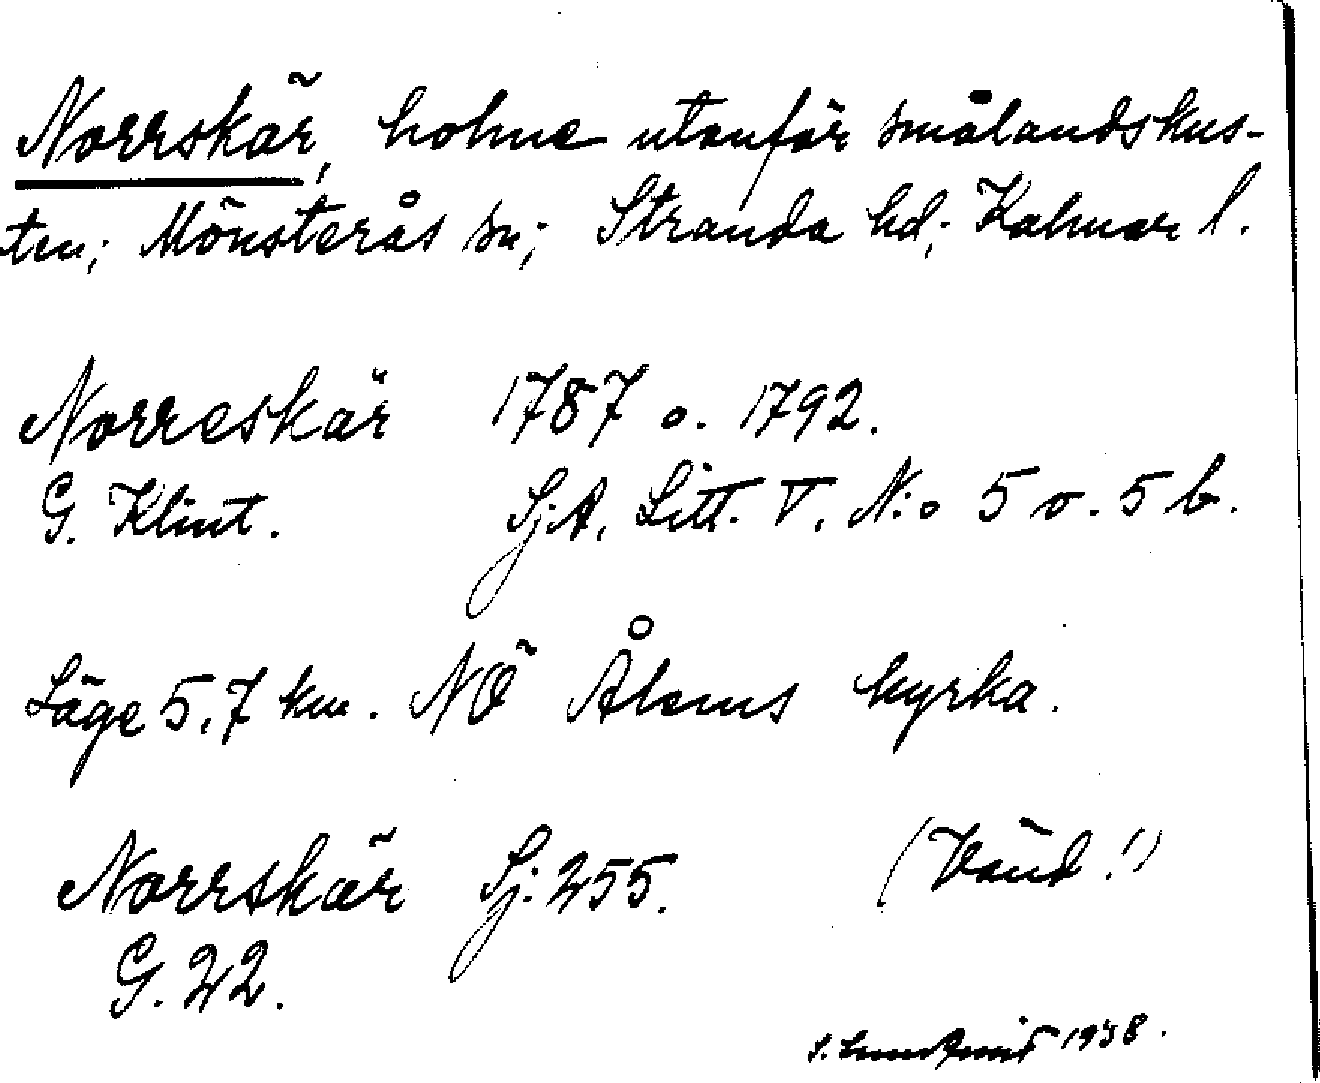 Norrskär, holme utanför smålandskus-
ten; Mönsterås sn; Stranda hd; Kalmar l.
Norreskär 1787 o. 1792.
G. Klint. Sj.A. Litt. V. N:o 5 o. 5 b.
Läge 5,7 km. NÖ Ålems kyrka.
Norrskär Sj. 255. (Vänd!)
G. 22.
1938.